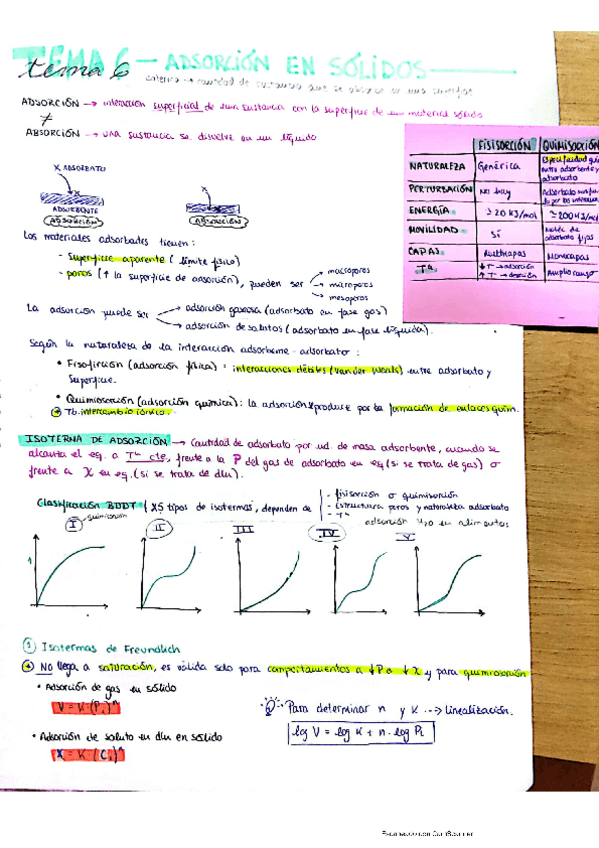 TEMA 6 - ADSORCIÓN EN SÓLIDOS
tema 6
cantidad de sustancia que se adsorbe en una superficie
ADSORCIÓN → interacción superficial de una sustancia con la superficie de un material sólido
≠
ABSORCIÓN → una sustancia se disuelve en un líquido.
X ADSORBATO
ADSORBENTE
ADSORCIÓN
ABSORCIÓN
FISISORCIÓN QUIMISORCIÓN
NATURALEZA Genérica Especificidad entre adsorbente y adsorbato
PERTURBACIÓN No hay Adsorbato
ENERGÍA ≥ 20 KJ/mol ≥ 200 KJ/mol
MOVILIDAD Sí de adsorbato fijas
CAPAS Multicapas Monocapas
Tª ↓T → adsorción Amplio rango
↑T → desorción
Los materiales adsorbates tienen:
- Superficie aparente (límite físico)
- poros (↑ la superficie de adsorción), pueden ser → macroporos
→ microporos
→ mesoporos
La adsorción puede ser → adsorción gaseosa (adsorbato en fase gas)
→ adsorción de solutos (adsorbato en fase líquida).
Según la naturaleza de la interacción adsorbente-adsorbato:
• Fisorción (adsorción física): interacciones débiles (van der Waals) entre adsorbato y
superficie.
• Quimiosorción (adsorción química): la adsorción produce por la formación de enlaces quím.
Tb. intercambio iónico.
ISOTERMA DE ADSORCIÓN → Cantidad de adsorbato por ud. de masa adsorbente, cuando se
alcanza el eq. a Tª cte, frente a la P del gas de adsorbato en eq (si se trata de gas) o
frente a X en eq. (si se trata de dln).
Clasificación BDDT (X5 tipos de isotermas, dependen de
- fisisorción o quimisorción
- Estructura poros y naturaleza adsorbato
- Tª
adsorción H2O en alimentos
I quimisorción II III IV V
① Isotermas de Freundlich
NO llega a saturación, es válida solo para comportamientos a ↓P o ↓X y para quimiosorción
• Adsorción de gas en sólido
V = K·(Pi)ⁿ
Para determinar n y K --> linealización.
log V = log K + n·log Pi
• Adsorción de soluto en dln en sólido
X = K·(Ci)ⁿ
Escaneado con CamScanner